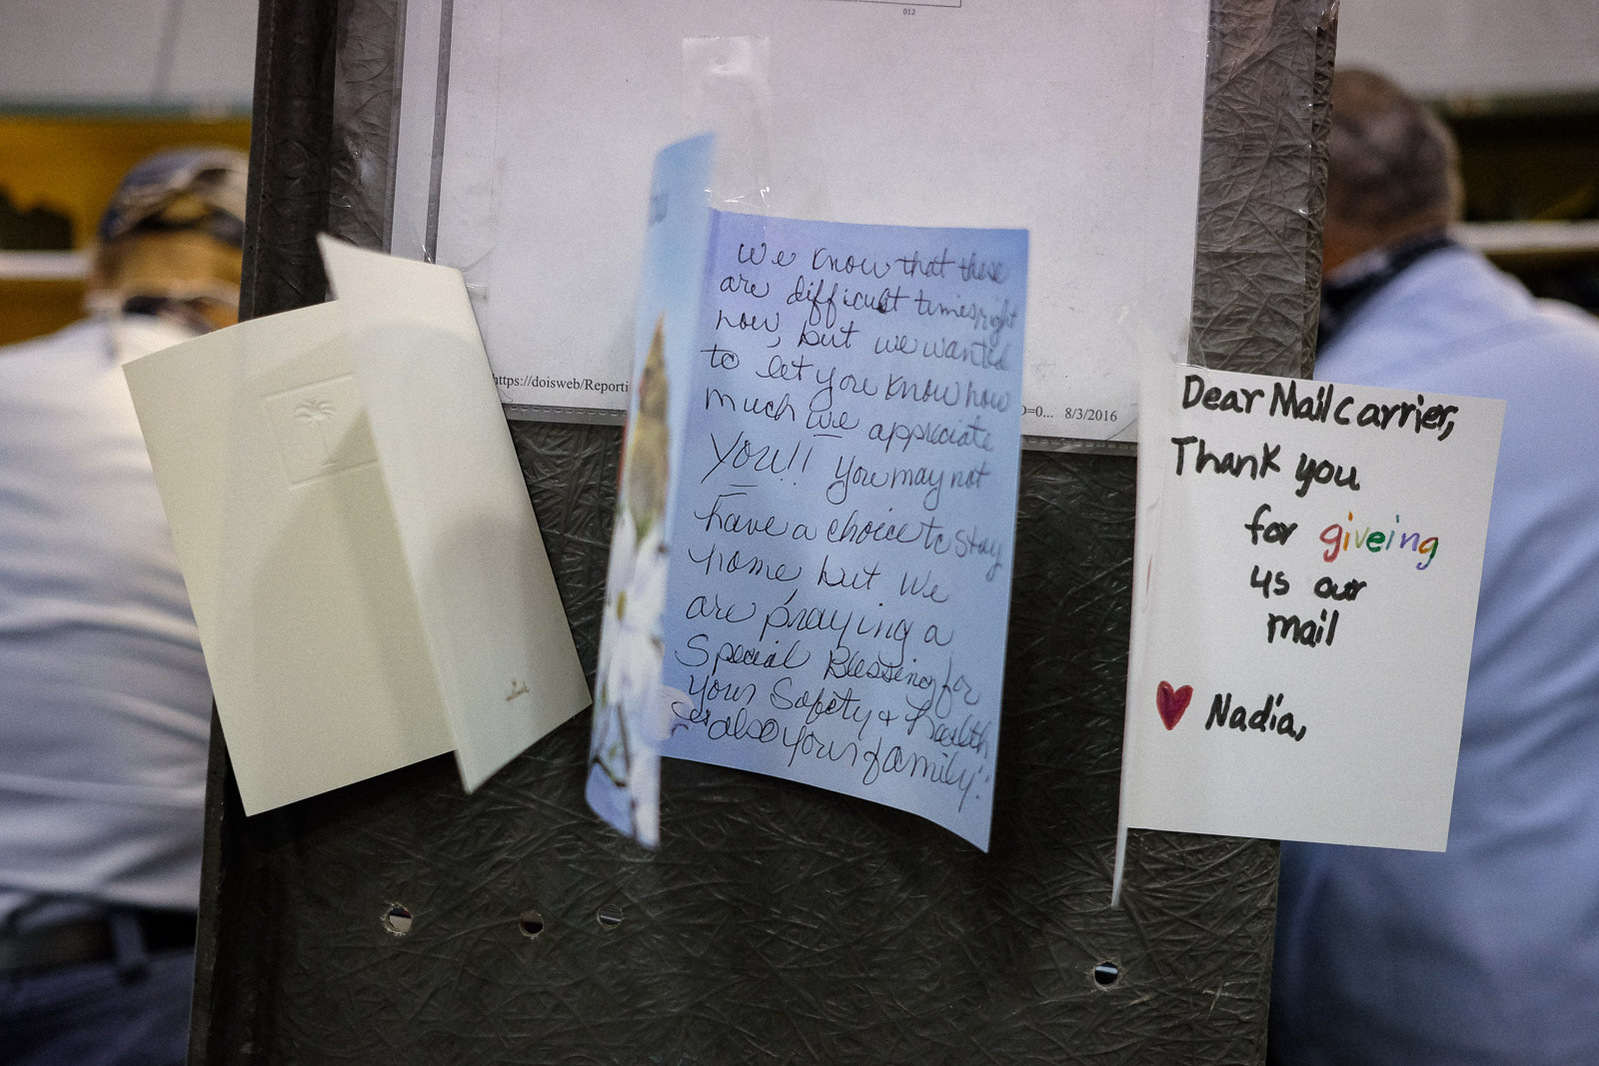 012
https://doisweb/Reporti
D=0... 8/3/2016
We know that these
are difficult times right
now, but we wanted
to let you know how
much we appreciate
YOU!! You may not
have a choice to stay
home, but we
are praying a
Special Blessing for
your Safety & health
& also your family!!
Dear Mailcarrier,
Thank you
for giveing
us our
mail
Nadia,